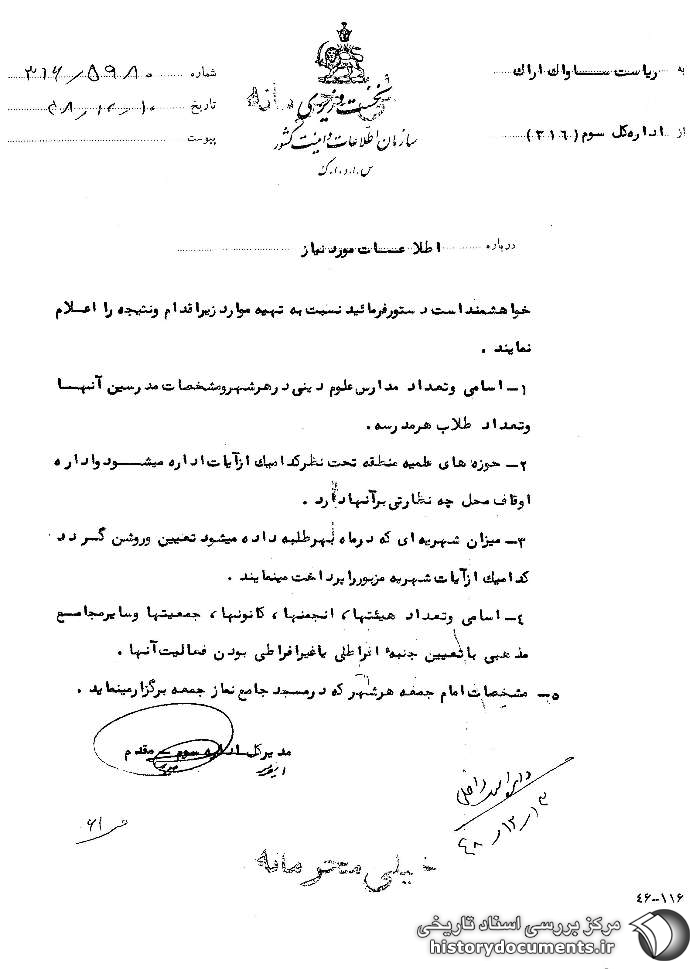 به ریاست ساواک اراک
از اداره کل سوم (۳۱۶)
نخست وزیری
سازمان اطلاعات و امنیت کشور
س.ا.و.ا.ک
شماره ۳۱۶/۵۹۸۰
تاریخ ۴۸/۱۲/۱۰
پیوست
درباره اطلاعات مورد نیاز
خواهشمند است دستور فرمائید نسبت به تهیه موارد زیر اقدام ونتیجه را اعلام
نمایند .
۱- اسامی وتعداد مدارس علوم دینی در هر شهر و مشخصات مدرسین آنهـا
وتعداد طلاب هر مدرسه .
۲- حوزه های علمیه منطقه تحت نظر کدامیک از آیات اداره میشود واداره
اوقاف محل چه نظارتی بر آنها دارد .
۳- میزان شهریه ای که در ماه بهر طلبه داده میشود تعیین وروشن گردد
کدامیک از آیات شهریه مزبور را پرداخت مینمایند .
٤- اسامی وتعداد هیئتها، انجمنها، کانونها، جمعیتها وسایر مجامع
مذهبی با تعیین جنبهٔ افراطی یا غیر افراطی بودن فعالیت آنها .
۵- مشخصات امام جمعه هر شهر که در مسجد جامع نماز جمعه برگزار مینماید .
مدیر کل اداره سوم - مقدم
۴۸/۱۲/۱۳
خیلی محرمانه
٤۶-۱۱۶
مرکز بررسی اسناد تاریخی
historydocuments.ir